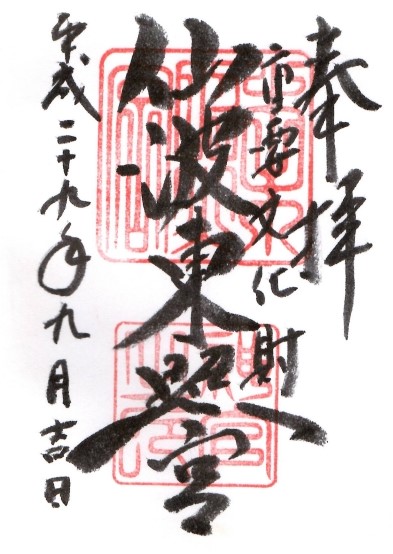 奉拝
重要文化財
仙波東照宮
平成二十九年九月吉日